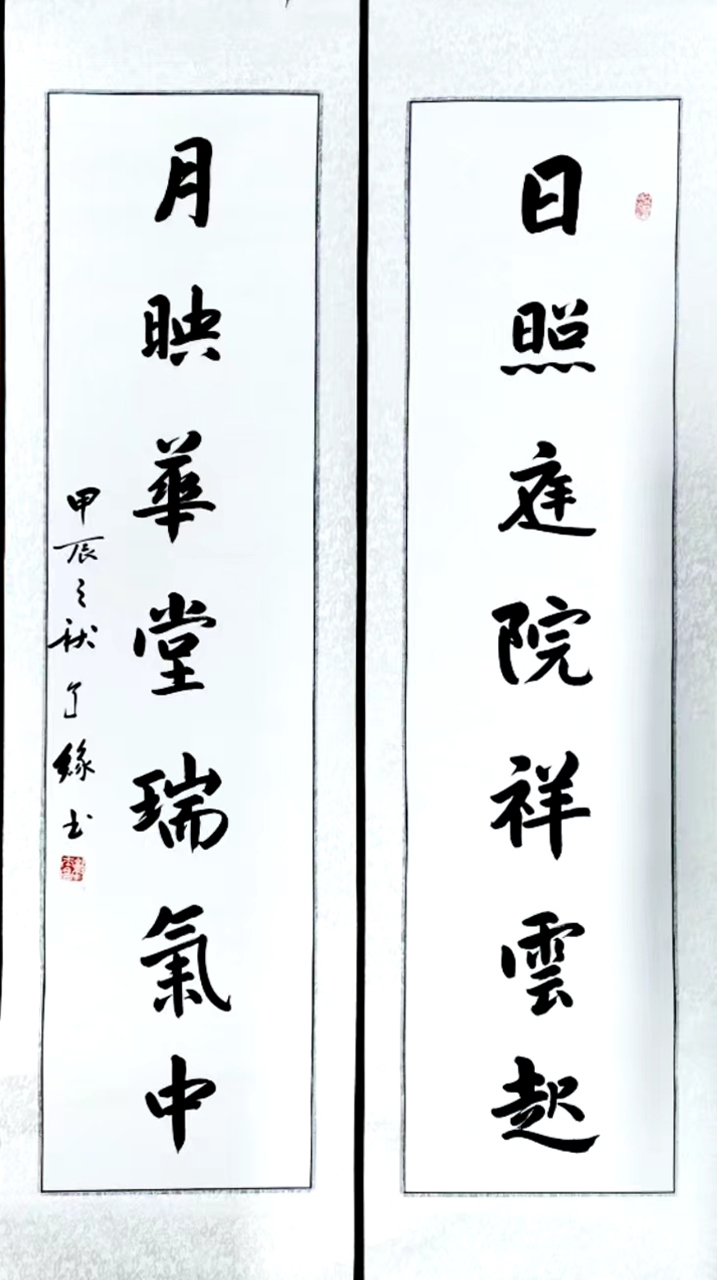 日照庭院祥雲起
月映華堂瑞氣中
甲辰之秋了緣书